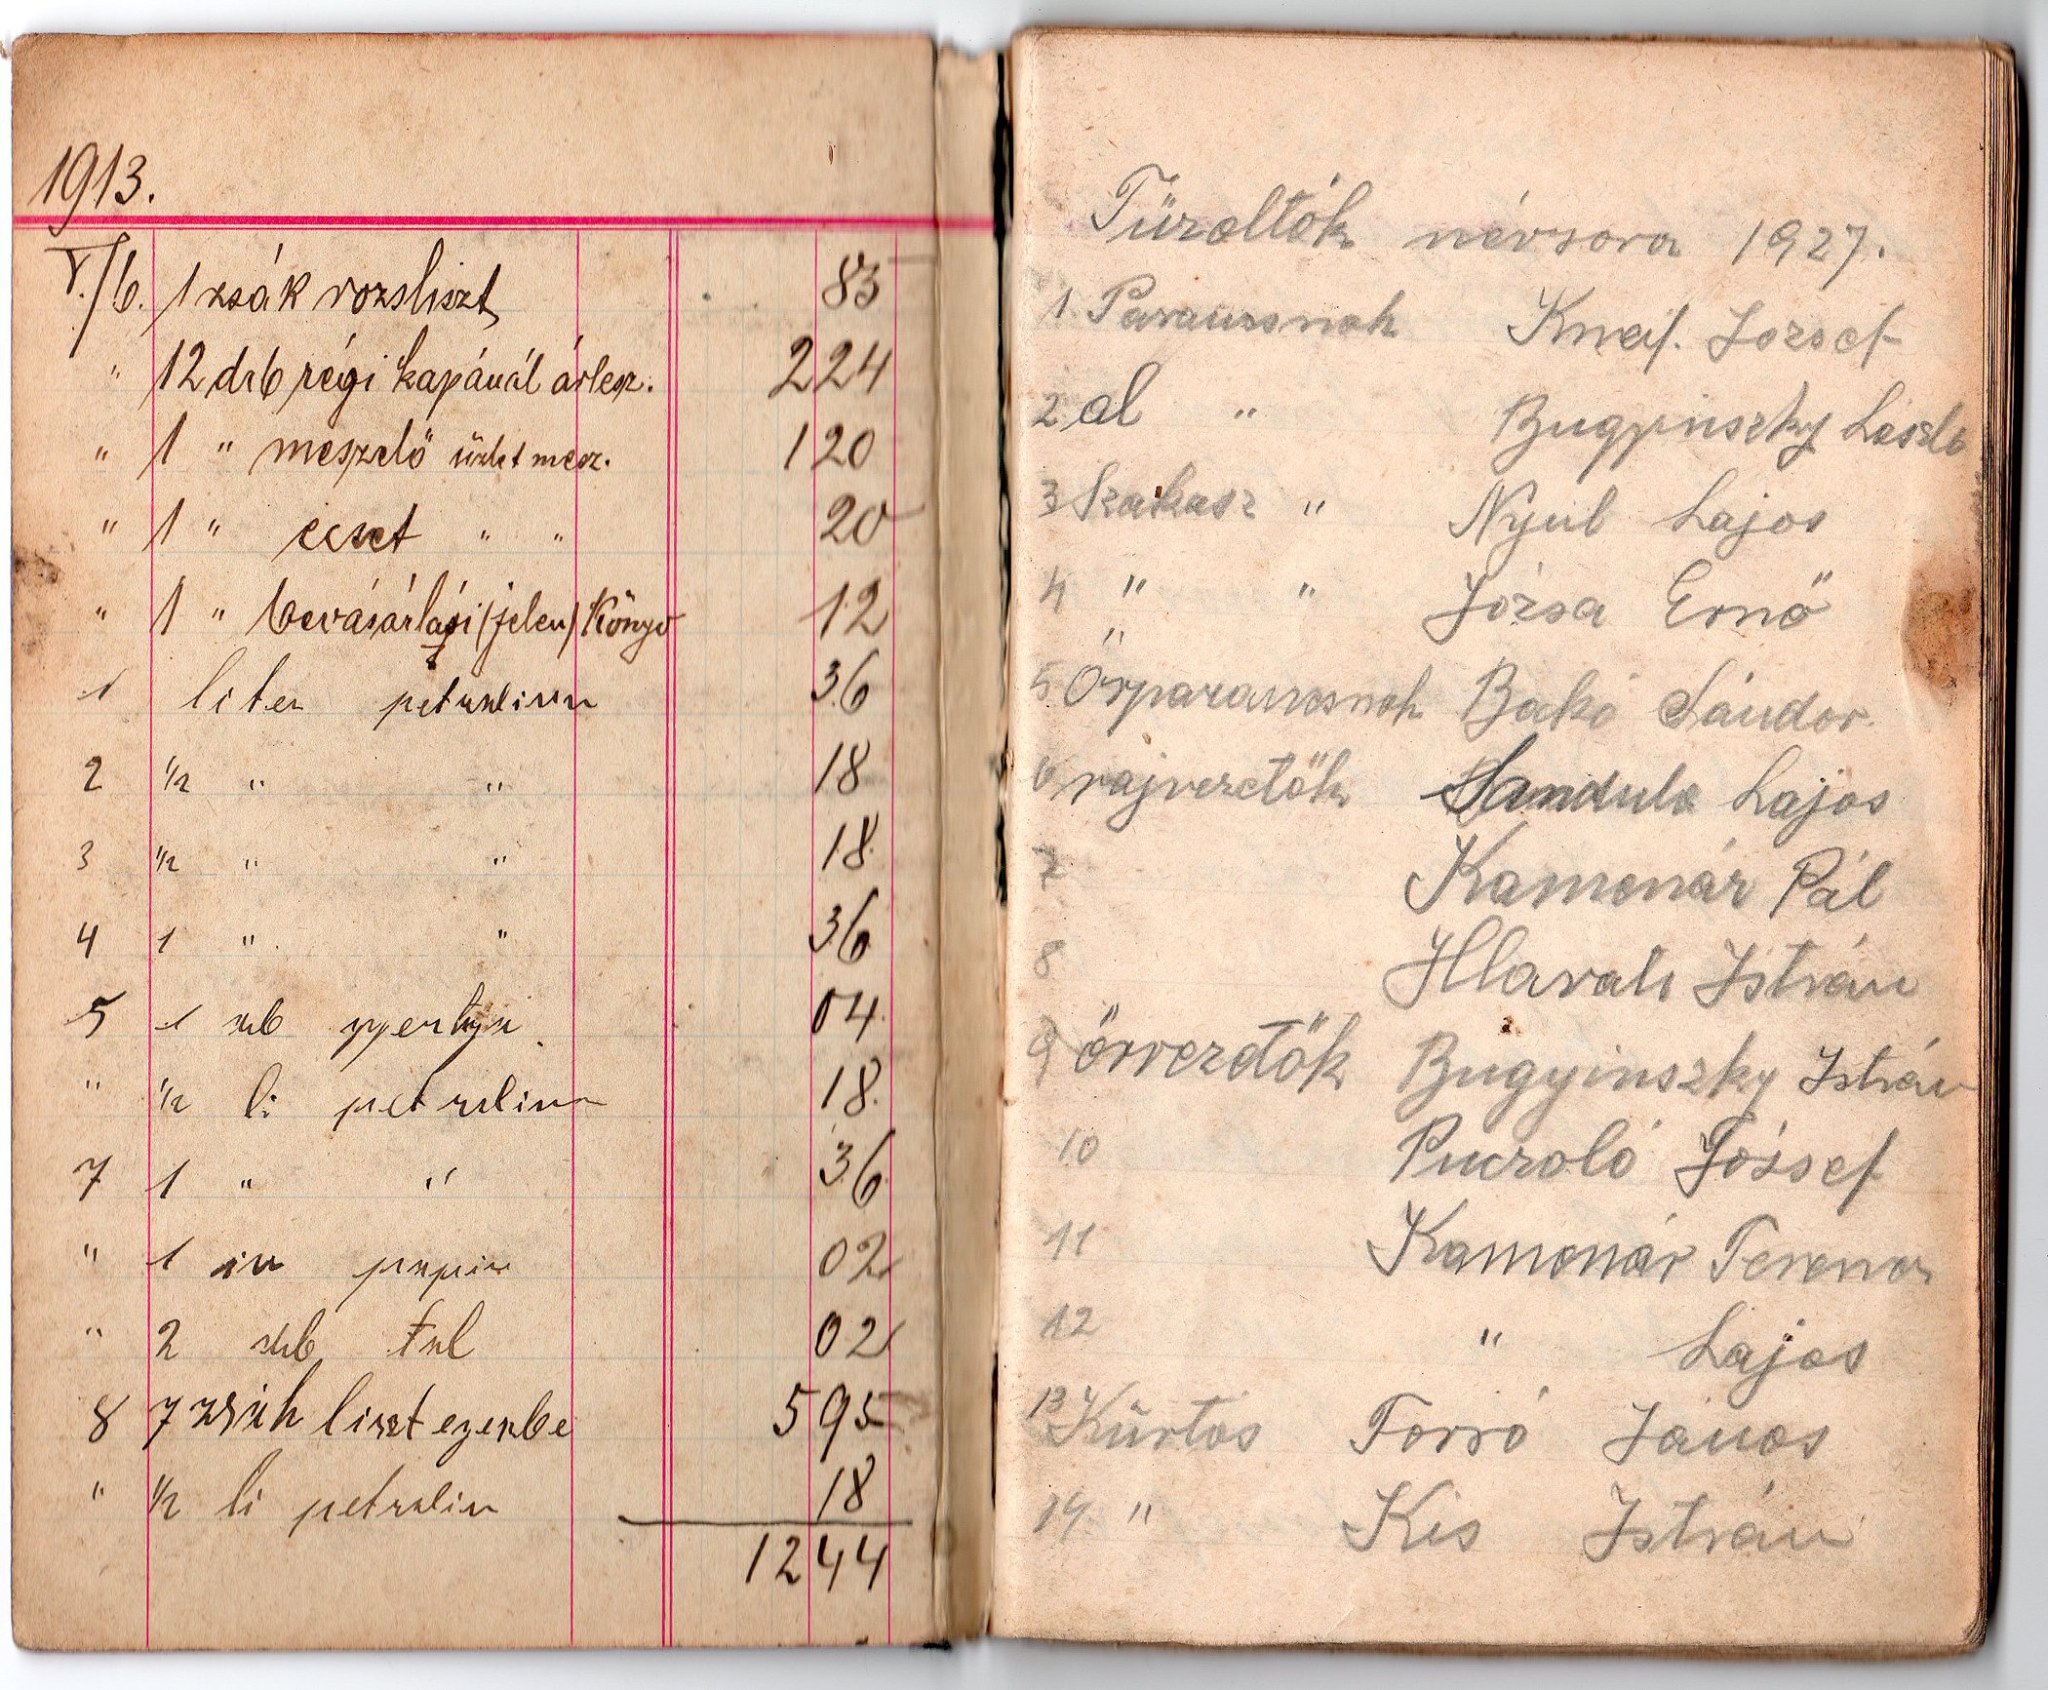 1913.
V./6. 1 zsák rozsliszt 83
" 12 drb régi kapánál árlesz. 224
" 1 " meszelő üzlet mesz. 120
" 1 " ecset " " 20
" 1 " bevásárlási (jelen) Könyv 12
1 liter petrolium 36
2 1/2 " " 18
3 1/2 " " 18.
4 1 " " 36
5 1 db gyertya 04.
" 1/2 li petrolium 18.
7 1 " " 36
" 1 iv papir 02
" 2 db 02
8 7 zsák liszt 595
" 1/2 li petrolium 18
1244
Tüzoltók névsora 1927.
1. Parancsnok Kneif. József
2 al " Bugyinszky László
3 Szakasz " Nyul Lajos
4 " " Józsa Ernő
5 Örparancsnok Bakó Sándor
6 rajvezetők Sandula Lajos
7 Kamenár Pál
8 Hlavati István
9 őrvezetők Bugyinszky István
10 József
11 Kamenár Ferencz
12 " Lajos
13 Kürtös Forró János
14. " Kis István